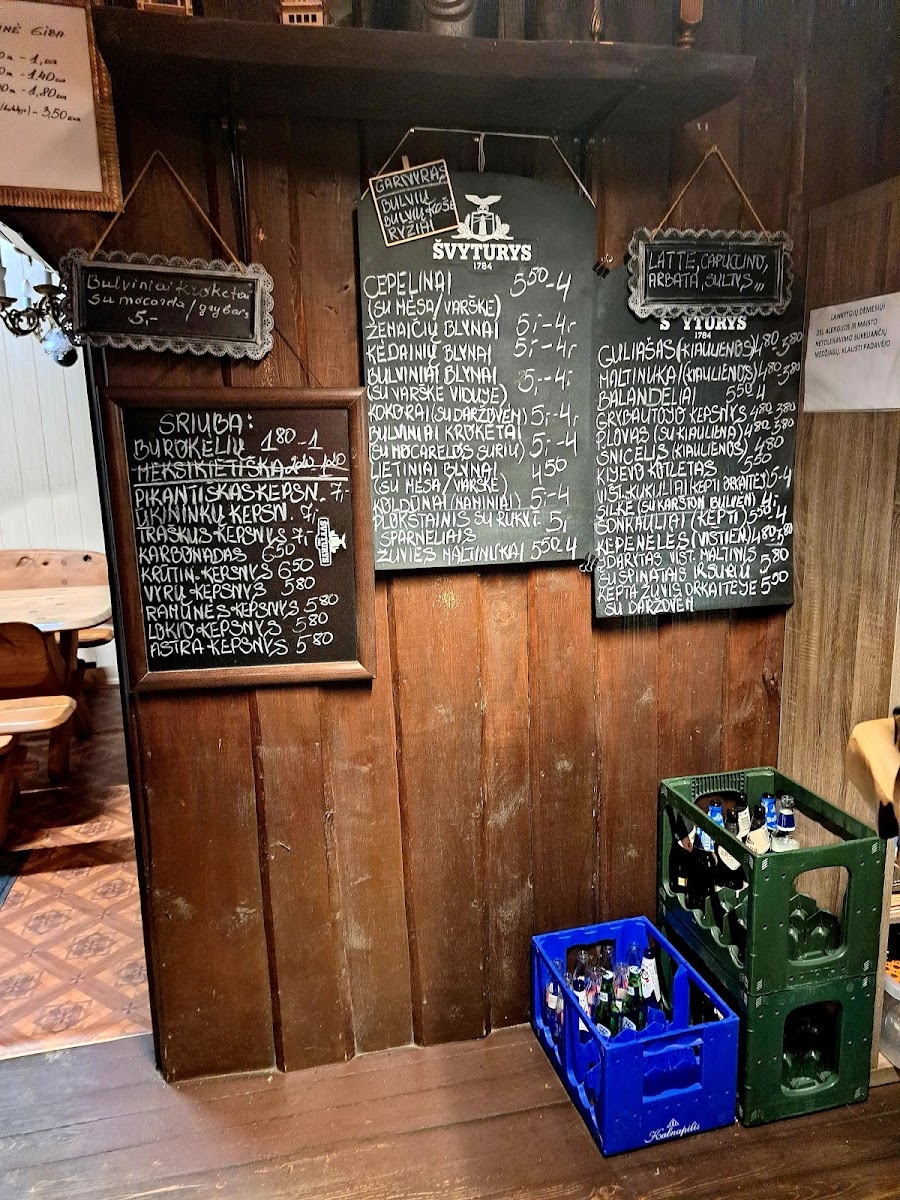 INĖ GIRA
- 1, EUR
- 1.40 EUR
- 1,80 EUR
- 3,50 EUR
Bulviniai kroketai
su mocarela / grybais
5,-
SRIUBA:
BUROKĖLIŲ 1⁸⁰-1
MEKSIKIETIŠKA
PIKANTIŠKAS KEPSN. 7,-
ŪKININKŲ KEPSN. 7,-
TRAŠKUS KEPSNYS 7,-
KARBONADAS 6⁵⁰
KRŪTIN. KEPSNYS 6⁵⁰
VYRŲ KEPSNYS 5⁸⁰
RAMUNĖS KEPSNYS 5⁸⁰
LOKIO KEPSNYS 5⁸⁰
ASTRA KEPSNYS 5⁸⁰
GARNYRAS
BULVIŲ
BULVIŲ KOŠĖ
RYŽIAI
ŠVYTURYS
1784
CEPELINAI 5⁵⁰-4
(SU MĖSA/VARŠKE)
ŽEMAIČIŲ BLYNAI 5,-4,-
KĖDAINIŲ BLYNAI 5,-4,-
BULVINIAI BLYNAI
(SU VARŠKE VIDUJE) 5,-4,-
KOKORAI (SU DARŽOVĖM) 5,-4,-
BULVINIAI KROKETAI
(SU MOCARELOS SŪRIU) 5,-4
LIETINIAI BLYNAI
(SU MĖSA/VARŠKE) 4⁵⁰
KOLDŪNAI (NAMINIAI) 5,-4
PLOKŠTAINIS SU RŪKYT. 5,
SPARNELIAIS
ŽUVIES MALTINUKAI 5⁵⁰-4
LATTE, CAPUCCINO,
ARBATA, SULTYS,,,
S YTURYS
1784
GULIAŠAS (KIAULIENOS) 4⁸⁰-3⁸⁰
MALTINUKAI (KIAULIENOS) 4⁸⁰-3⁸⁰
BALANDĖLIAI 5⁵⁰-4
GRYBAUTOJO KEPSNYS 4⁸⁰-3⁸⁰
PLOVAS (SU KIAULIENA) 4⁸⁰-3⁸⁰
ŠNICELIS (KIAULIENOS) 4⁸⁰
KIJEVO KOTLETAS 5⁵⁰
VIŠT. KUKULIAI (KEPTI ORKAITĖJE) 5-4
SILKĖ (SU KARŠTOM BULVĖM) 4,-
ŠONKAULIAI (KEPTI) 5⁵⁰-4
KEPENĖLĖS (VIŠTIEN.) 4⁸⁰-3⁸⁰
ĮDARYTAS VIŠT. MALTINIS
SU ŠPINATAIS IR SŪRIU 5⁸⁰
KEPTA ŽUVIS ORKAITĖJE 5⁵⁰
SU DARŽOVĖM
LANKYTOJŲ DĖMESIUI
DĖL ALERGIJOS IR MAISTO
NETOLERAVIMO SUKELIANČIŲ
MEDŽIAGŲ, KLAUSTI PADAVĖJO
Kalnapilis